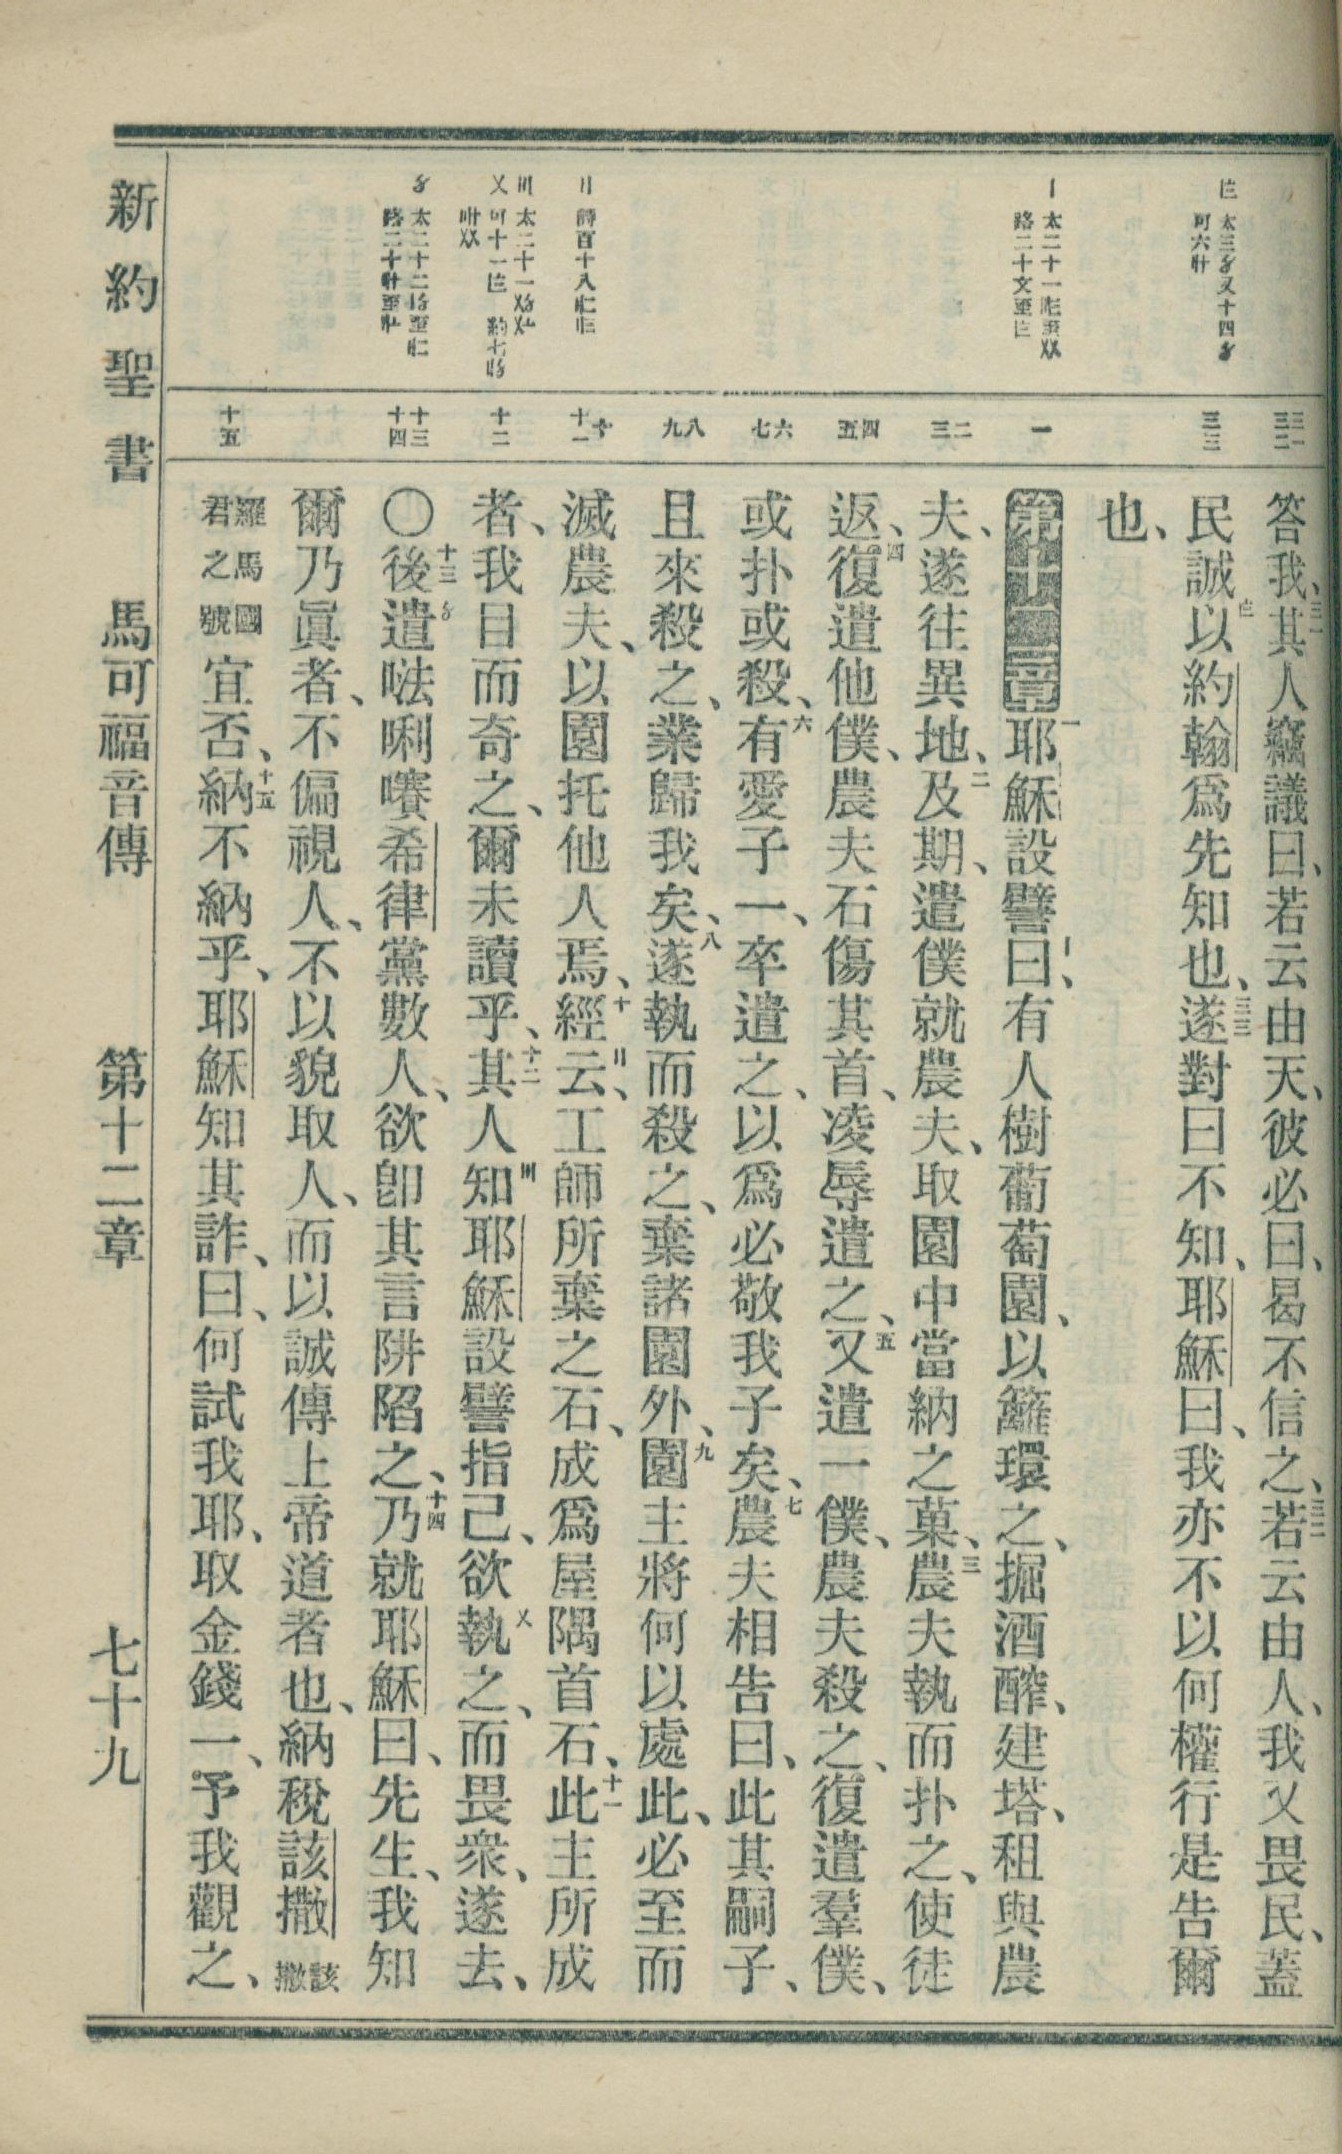 答我、三十一其人竊議曰、若云由天、彼必曰、曷不信之、三十二若云由人、我又畏民、蓋
民誠以約翰爲先知也、三十三遂對曰不知、耶穌曰、我亦不以何權行是告爾
也、
第十二章 一耶穌設譬曰、有人樹葡萄園、以籬環之、掘酒醡、建塔、租與農
夫、遂往異地、二及期、遣僕就農夫、取園中當納之菓、三農夫執而扑之、使徒
返、四復遣他僕、農夫石傷其首、凌辱遣之、五又遣一僕、農夫殺之、復遣羣僕、
或扑或殺、六有愛子一、卒遣之、以爲必敬我子矣、七農夫相告曰、此其嗣子、
且來殺之、業歸我矣、八遂執而殺之、棄諸園外、九園主將何以處此、必至而
滅農夫、以園托他人焉、十經云、工師所棄之石、成爲屋隅首石、十一此主所成
者、我目而奇之、爾未讀乎、十二其人知耶穌設譬指己、欲執之、而畏衆、遂去、
〇十三後遣𠵽唎㘔希律黨數人、欲卽其言阱陷之、十四乃就耶穌曰、先生、我知
爾乃眞者、不偏視人、不以貌取人、而以誠傳上帝道者也、納稅該撒該撒
羅馬國君之號宜否、十五納不納乎、耶穌知其詐、曰、何試我耶、取金錢一、予我觀之、
新約聖書 馬可福音傳 第十二章 七十九